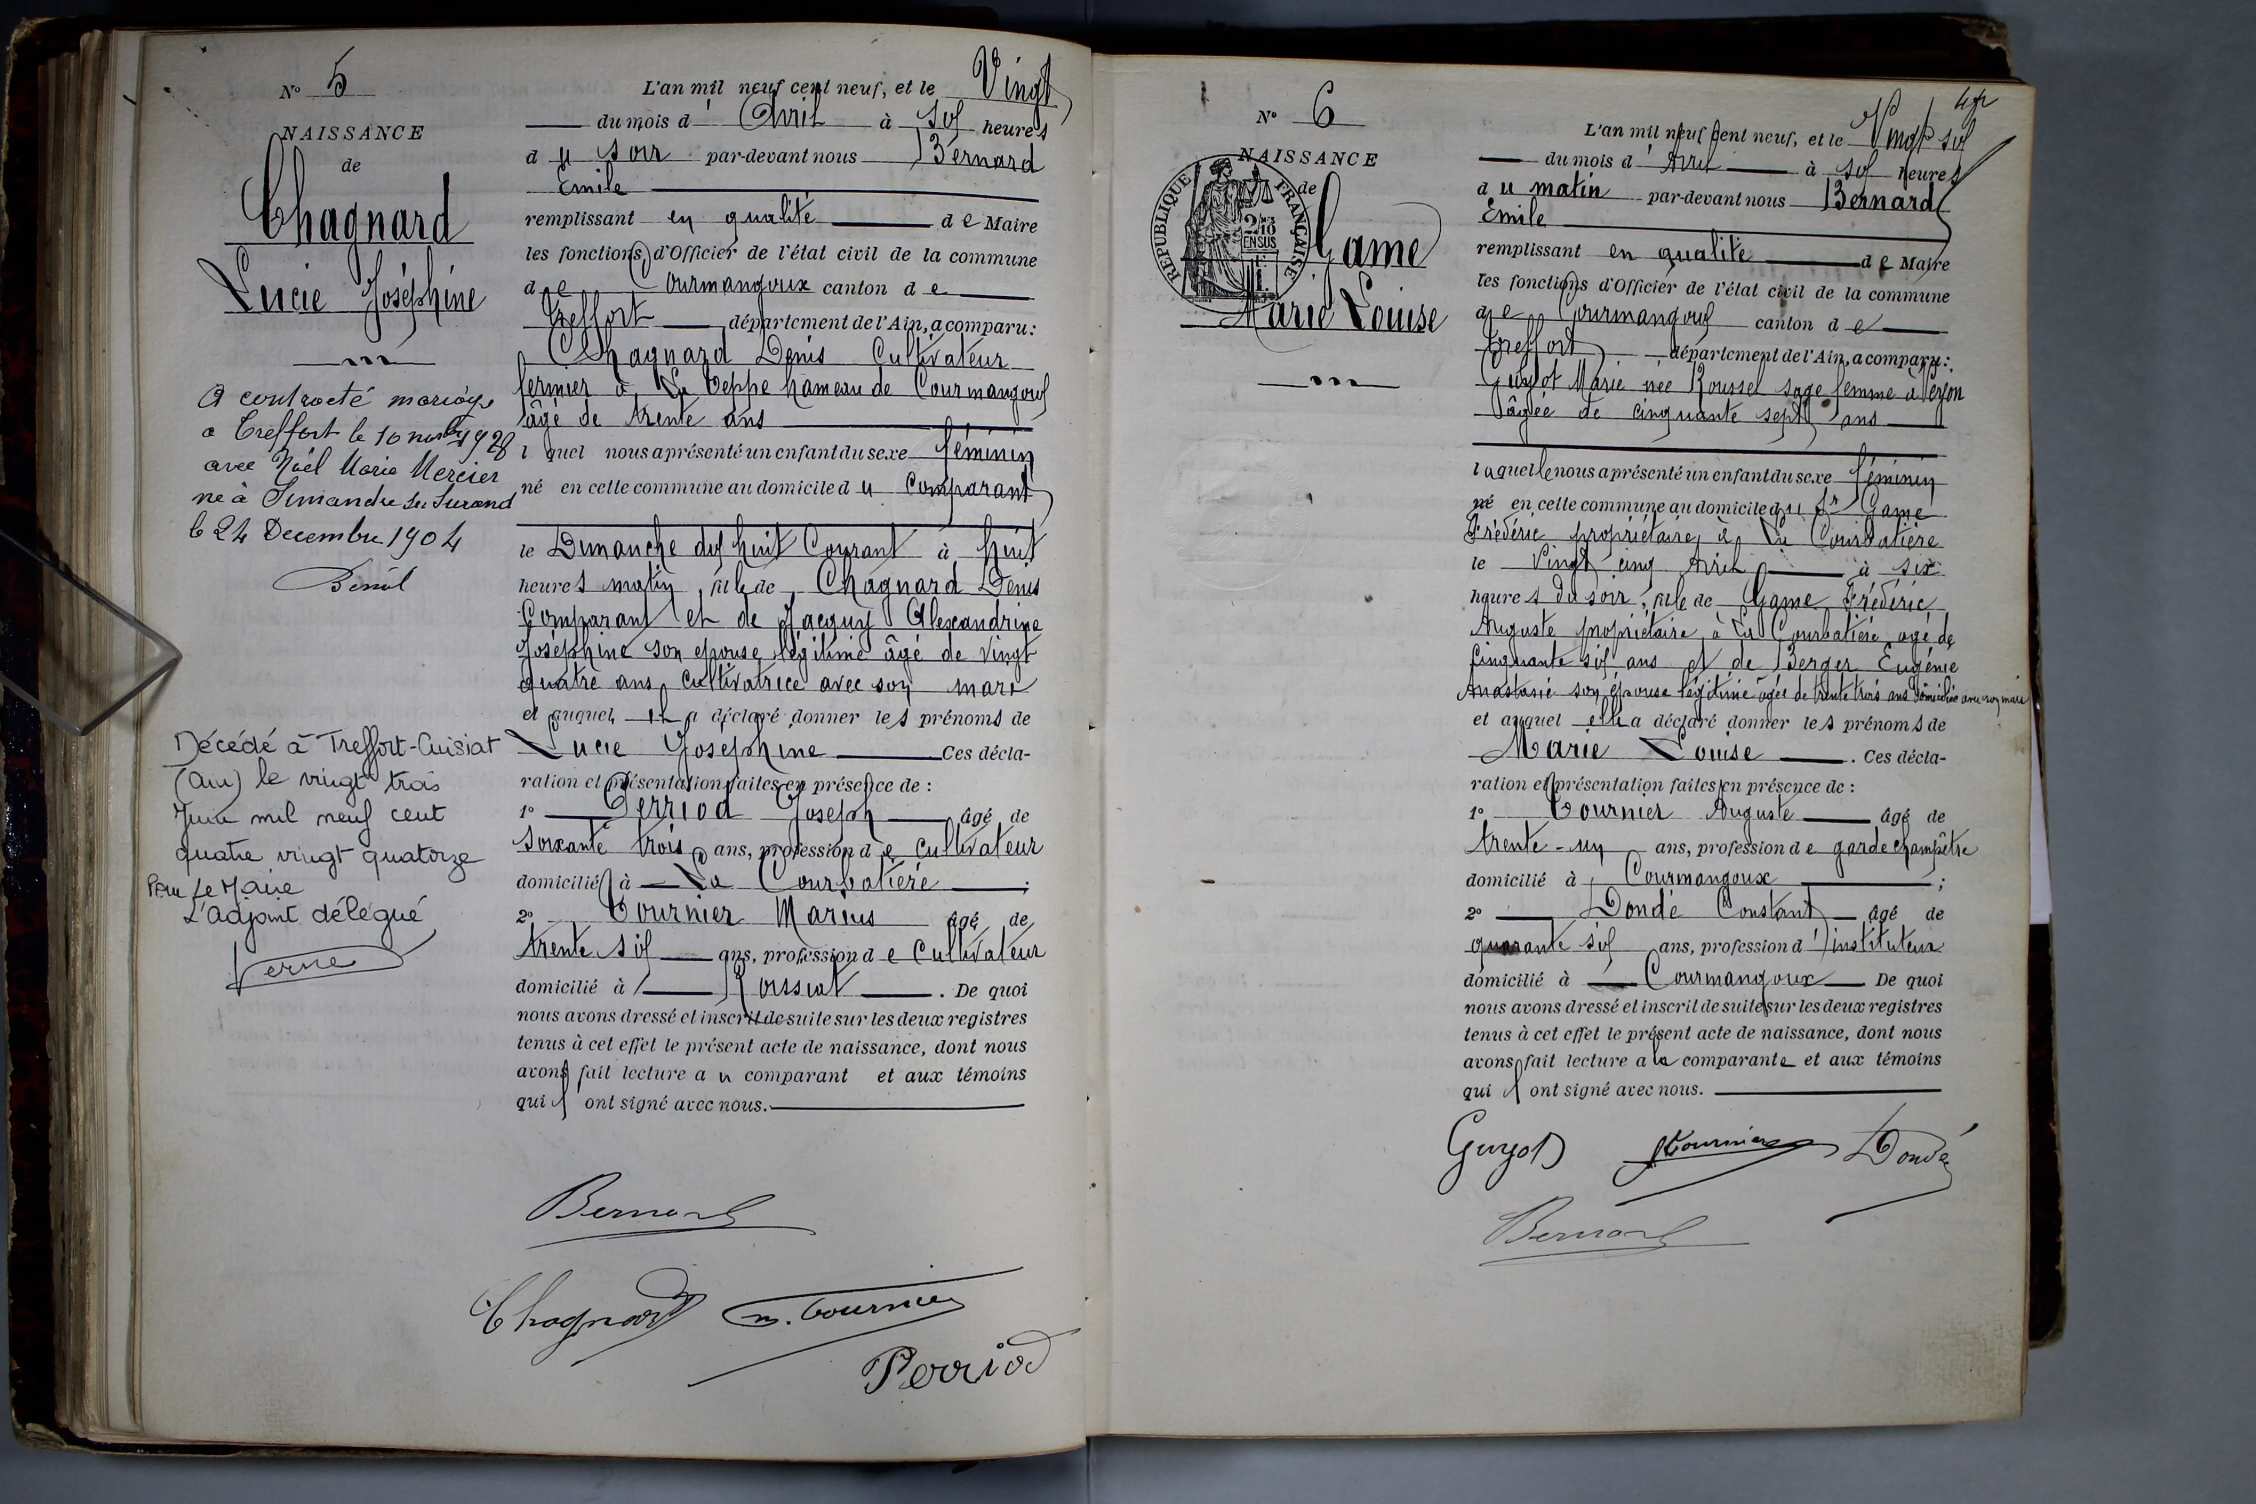 N° 5
NAISSANCE
de
Chagnard
Lucie Joséphine
A contracté mariage
à Treffort le 10 novbre 1928
avec Noël Marie Mercier
né à Simandre sur Surand
le 24 Decembre 1904
Décédé à Treffort-Cuisiat
(Ain) le vingt trois
Juin mil neuf cent
quatre vingt quatorze
Pour Le Maire
L'adjoint délégué
Verne
L'an mil neuf cent neuf, et le Vingt
du mois d' Avril à six heures
du soir par-devant nous Bernard
Emile
remplissant en qualité de Maire
les fonctions d'Officier de l'état civil de la commune
de Courmangoux canton de
Treffort département de l'Ain, a comparu:
Chagnard Denis Cultivateur
fermier à La Teppe hameau de Courmangoux
âgé de trente ans
lequel nous a présenté un enfant du sexe féminin
né en cette commune au domicile du Comparant
le Dimanche dix huit Courant à huit
heures matin, fille de Chagnard Denis
Comparant et de Jacquy Alexandrine
Joséphine son épouse légitime âgé de vingt
quatre ans cultivatrice avec son mari
et auquel il a déclaré donner les prénoms de
Lucie Joséphine Ces décla-
ration et présentation faites en présence de :
1° Perriod Joseph âgé de
soixante trois ans, profession de cultivateur
domicilié à La Courbatière ;
2° Tournier Marius âgé de
trente six ans, profession de Cultivateur
domicilié à Roissiat . De quoi
nous avons dressé et inscrit de suite sur les deux registres
tenus à cet effet le présent acte de naissance, dont nous
avons fait lecture au comparant et aux témoins
qui ont signé avec nous.
Bernard
Chagnard M. Tournier
Perriod
N° 6
NAISSANCE
de
RÉPUBLIQUE FRANÇAISE
2/10
EN SUS
Game
Marie Louise
L'an mil neuf cent neuf, et le Vingt six
du mois d' Avril à six heures
du matin par-devant nous Bernard
Emile
remplissant en qualité de Maire
les fonctions d'Officier de l'état civil de la commune
de Courmangoux canton de
Treffort département de l'Ain, a comparu:
Guyot Marie née Roussel sage femme à Verjon
âgée de cinquante sept ans
laquelle nous a présenté un enfant du sexe féminin
né en cette commune au domicile du Sr Game
Frédéric propriétaire à La Courbatière
le Vingt cinq Avril à six
heures du soir, fille de Game Frédéric
Auguste propriétaire à La Courbatière âgé de
Cinquante six ans et de Berger Eugénie
Anastasie son épouse légitime âgée de trente trois ans domiciliée avec son mari
et auquel elle a déclaré donner les prénoms de
Marie Louise . Ces décla-
ration et présentation faites en présence de :
1° Tournier Auguste âgé de
trente-un ans, profession de garde champêtre
domicilié à Courmangoux ;
2° Dondé Constant âgé de
quarante six ans, profession d'instituteur
domicilié à Courmangoux De quoi
nous avons dressé et inscrit de suite sur les deux registres
tenus à cet effet le présent acte de naissance, dont nous
avons fait lecture a la comparante et aux témoins
qui ont signé avec nous.
Guyot Tournier Dondé
Bernard